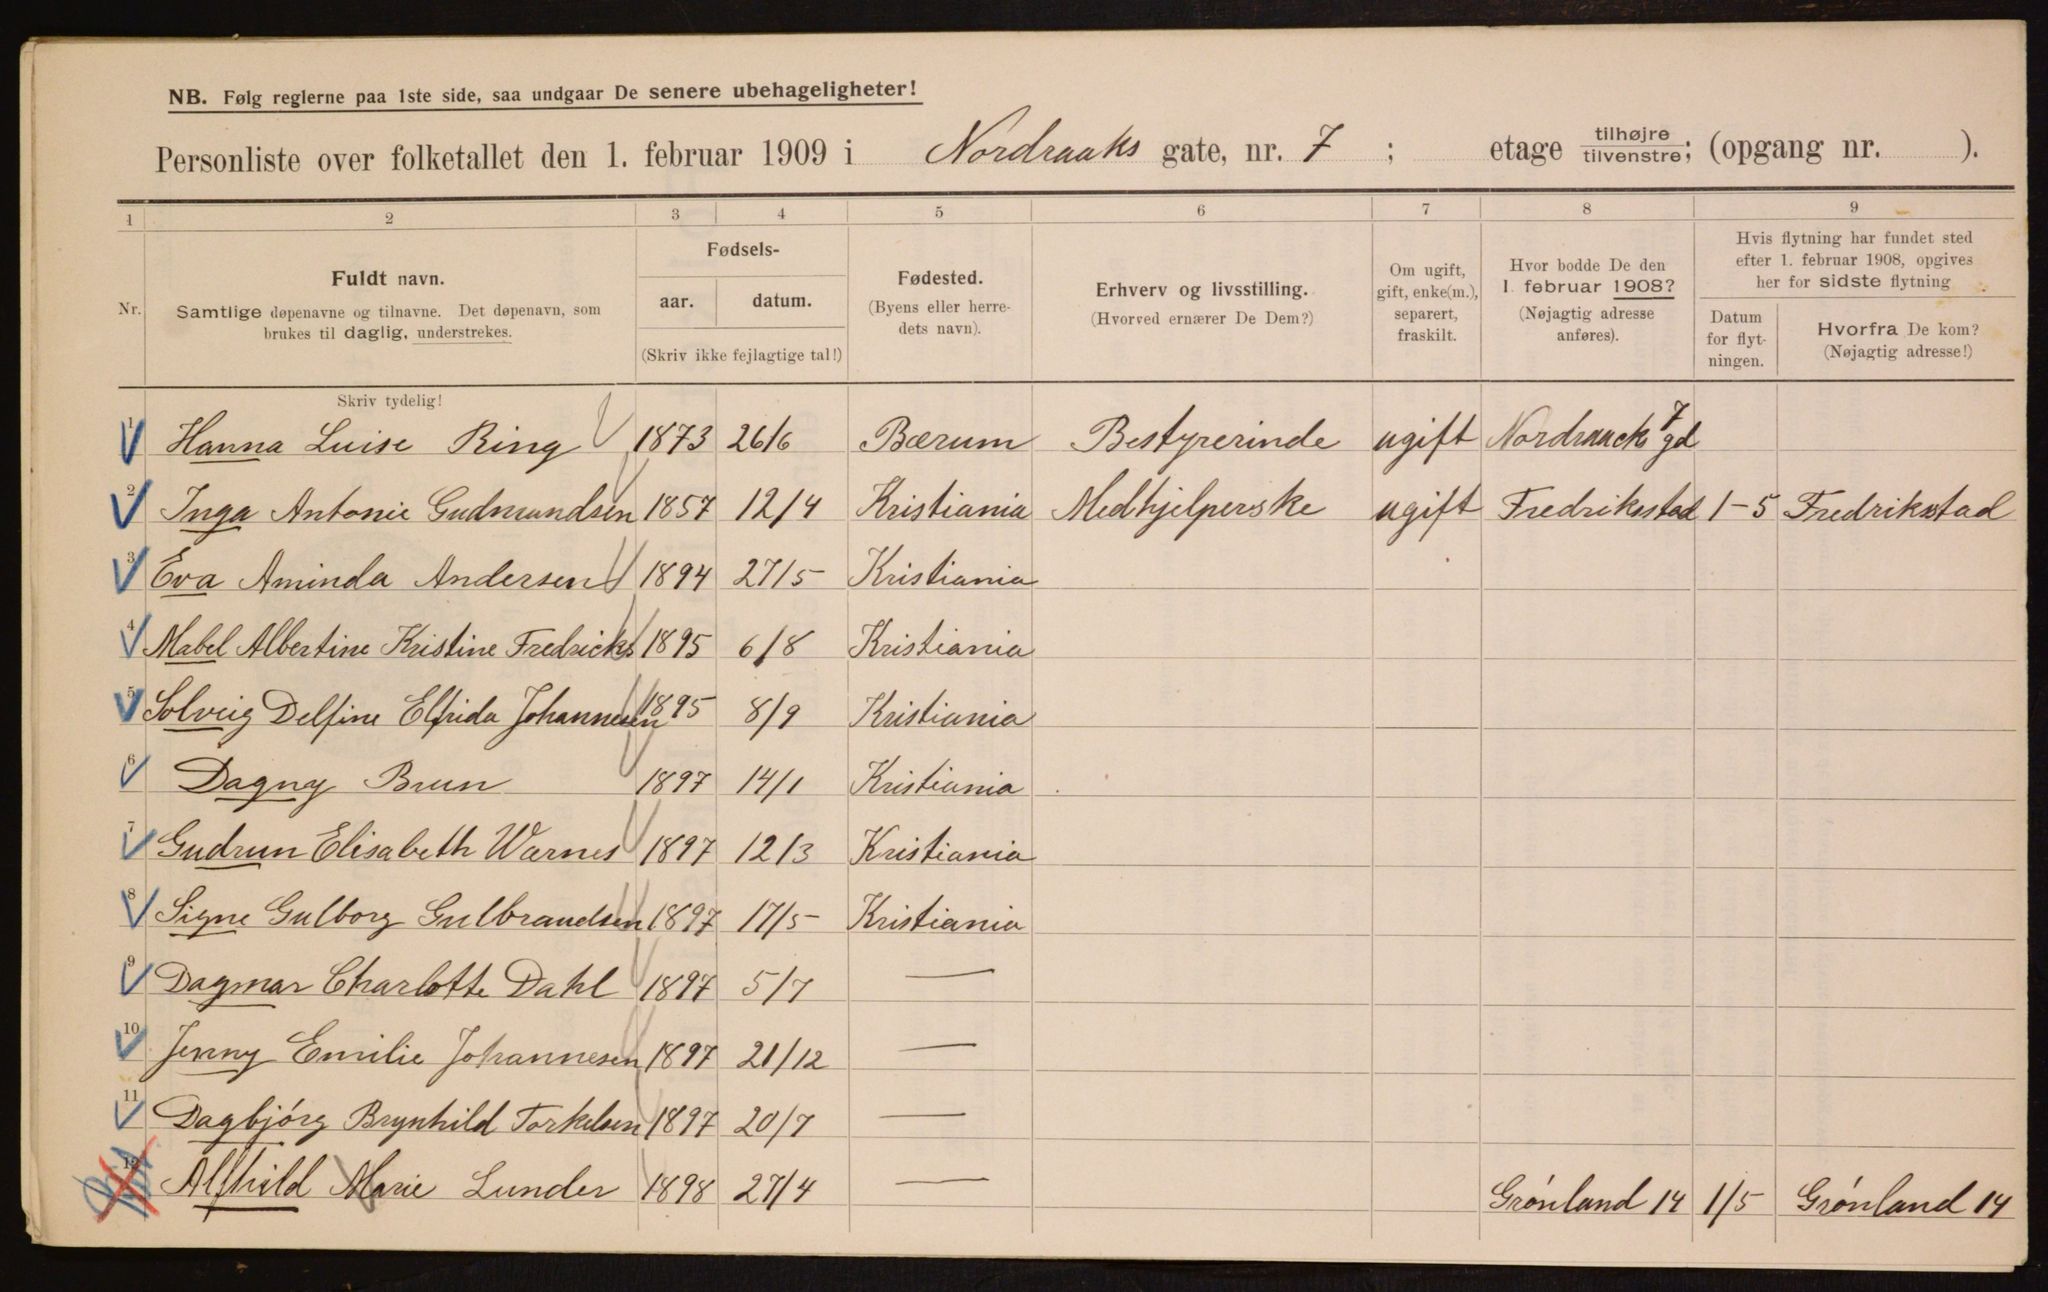 NB. Følg reglerne paa 1ste side, saa undgaar De senere ubehageligheter!
Personliste over folketallet den 1. februar 1909 i Nordraaks gate, nr. 7 ; etage tilhøjre/tilvenstre; (opgang nr. ).
1 2 3 4 5 6 7 8 9
Nr.
Fuldt navn.
Samtlige døpenavne og tilnavne. Det døpenavn, som
brukes til daglig, understrekes.
Fødsels-
aar. datum.
(Skriv ikke fejlagtige tal!)
Fødested.
(Byens eller herre-
dets navn).
Erhverv og livsstilling.
(Hvorved ernærer De Dem?)
Om ugift,
gift, enke(m.),
separert,
fraskilt.
Hvor bodde De den
1. februar 1908?
(Nøjagtig adresse
anføres).
Hvis flytning har fundet sted
efter 1. februar 1908, opgives
her for sidste flytning
Datum
for flyt-
ningen.
Hvorfra De kom?
(Nøjagtig adresse!)
Skriv tydelig!
1 Hanna Luise Ring 1873 26/6 Bærum Bestyrerinde ugift Nordraack 7 gd
2 Inga Antonie Gudmundsen 1857 12/4 Kristiania Medhjelperske ugift Fredriksstad 1-5 Fredriksstad
3 Eva Aminda Andersen 1894 27/5 Kristiania
4 Mabel Albertine Kristine Fredricks 1895 6/8 Kristiania
5 Solveig Delfine Elfrida Johannesen 1895 8/9 Kristiania
6 Dagny Brun 1897 14/1 Kristiania
7 Gudrun Elisabeth Warnes 1897 12/3 Kristiania
8 Signe Gulborg Gulbrandsen 1897 17/5 Kristiania
9 Dagmar Charlotte Dahl 1897 5/7 —
10 Jenny Emilie Johannesen 1897 21/12 —
11 Dagbjórg Brynhild Torkelsen 1897 20/7 —
12 Alfhild Marie Lunder 1898 27/4 — Grónland 14 1/5 Grónland 14